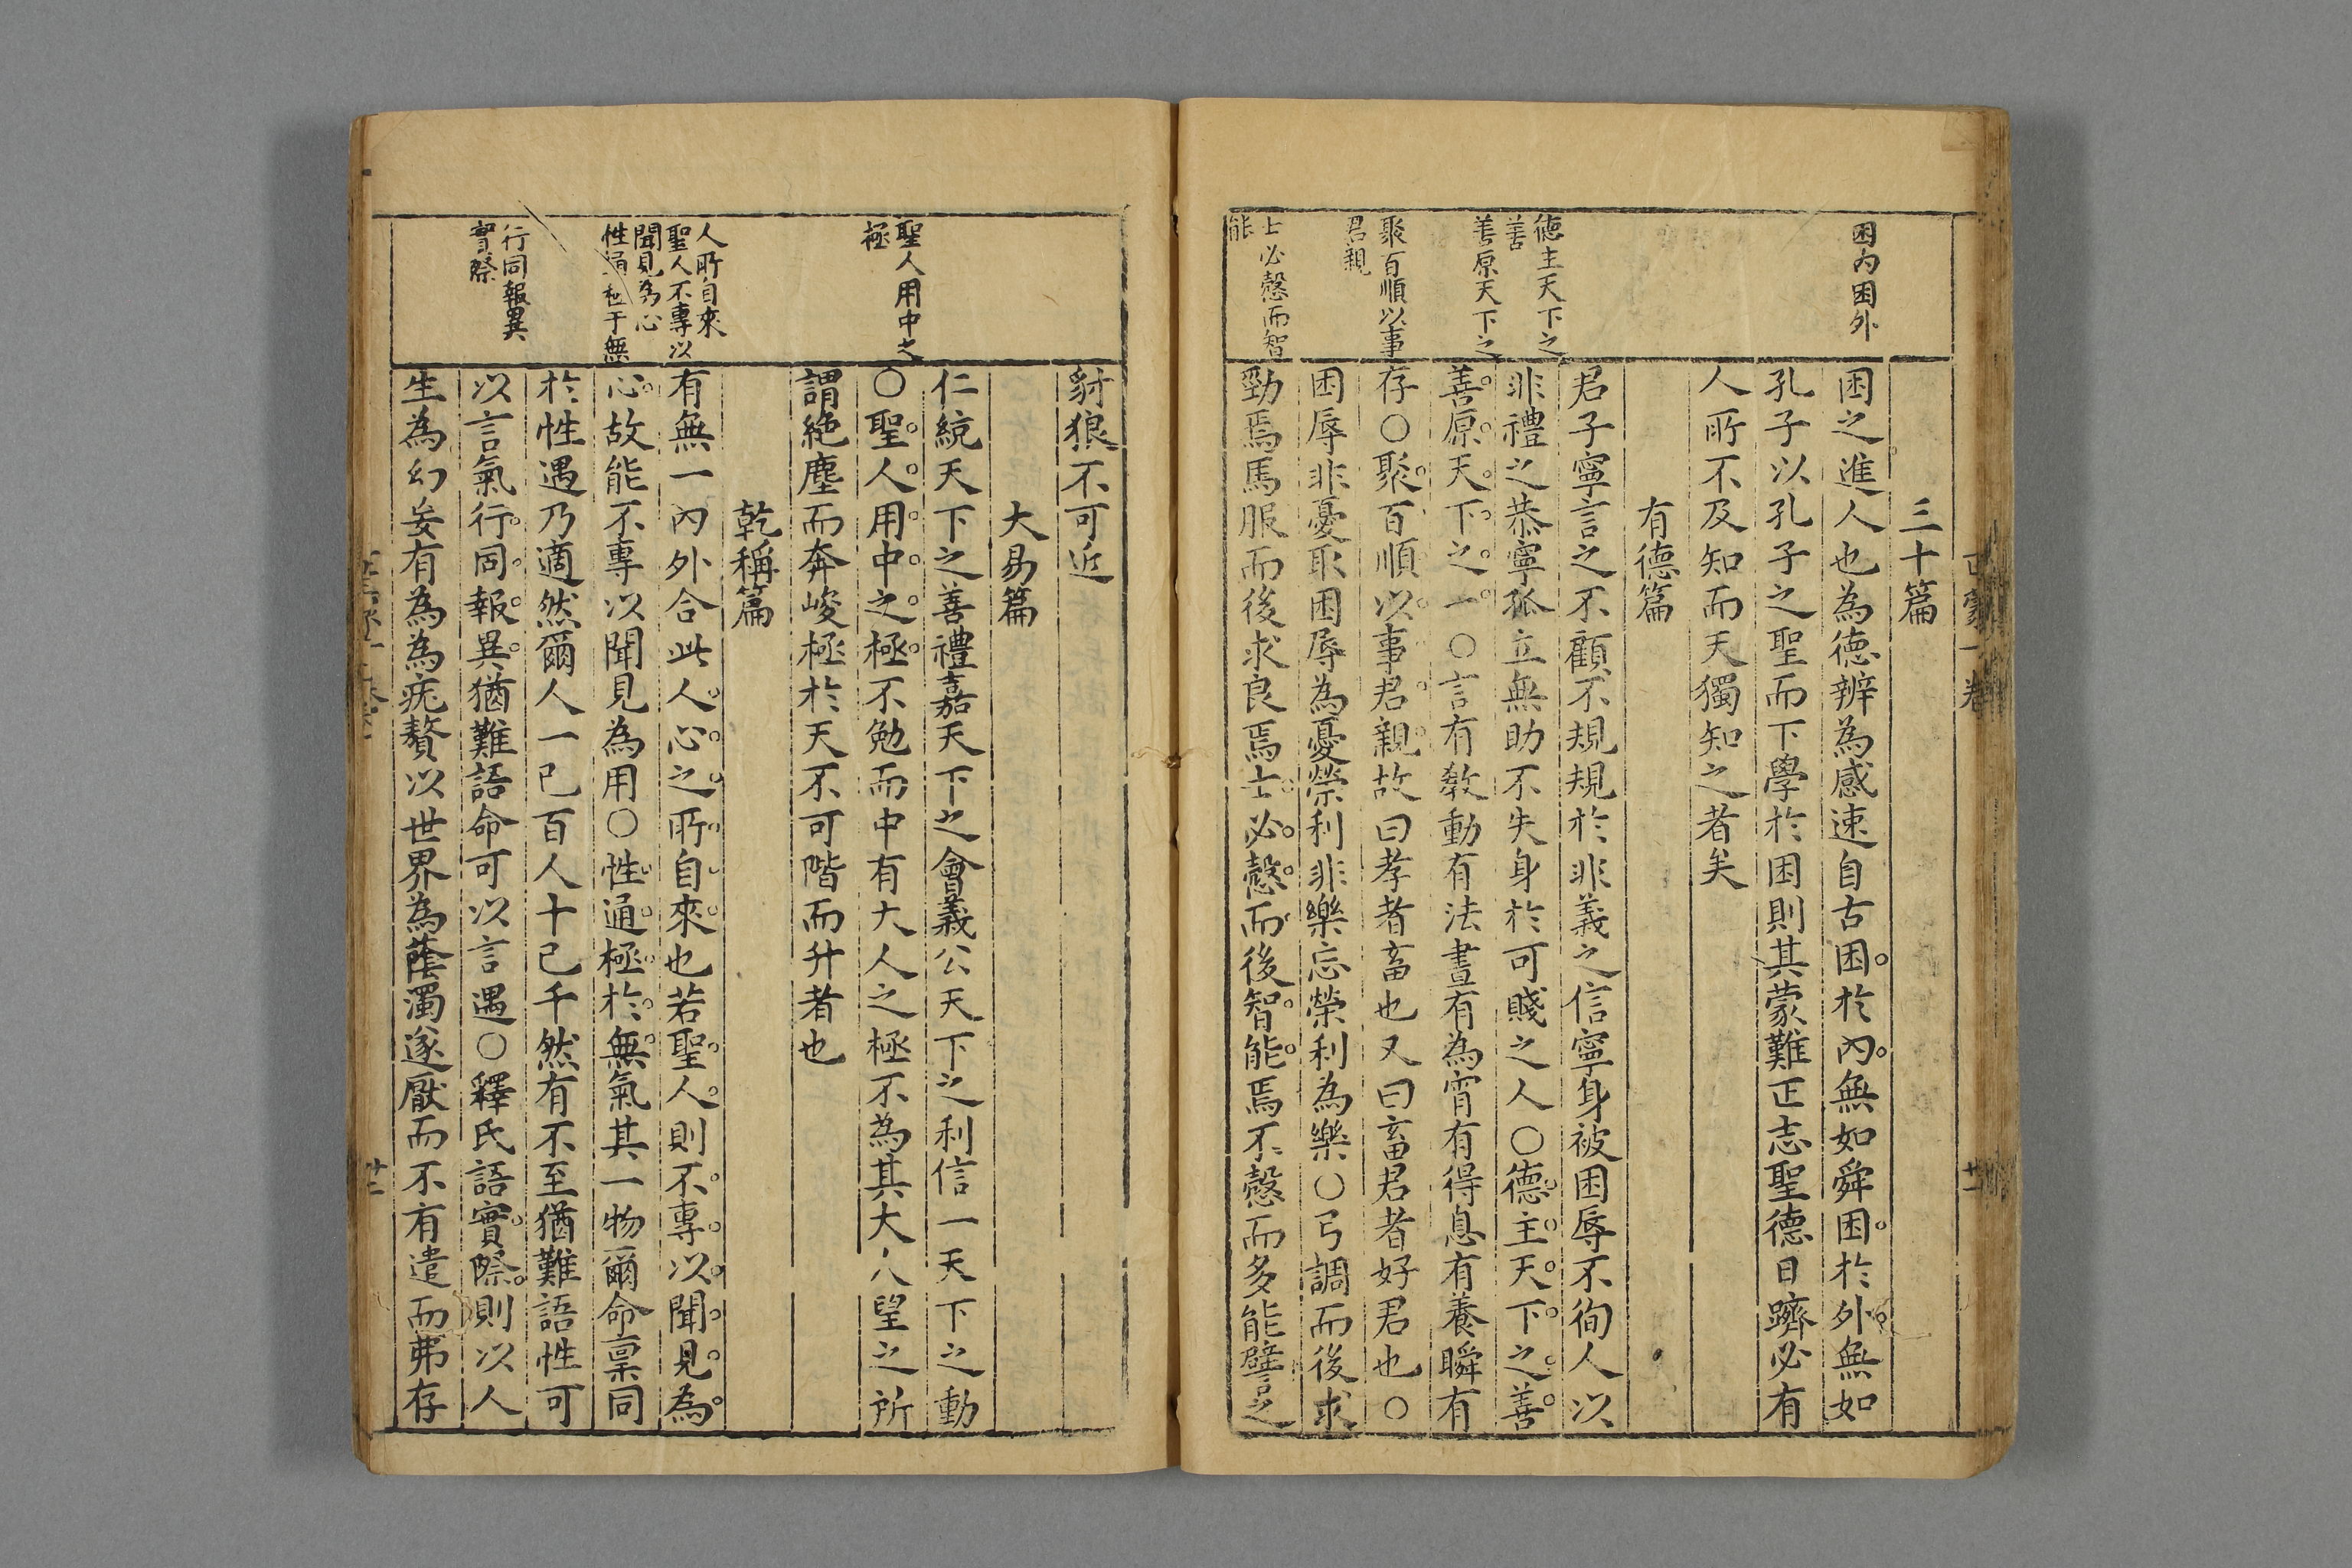 三十篇
困之進人也為德辨為感速自古困於內無如舜困於外無如
孔子以孔子之聖而下學於困則其蒙難正志聖德日躋必有
人所不及知而天獨知之者矣
有德篇
君子寧言之不顧不規規於非義之信寧身被困辱不徇人以
非禮之恭寧孤立無助不失身於可賤之人○德主天下之善
善原天下之一○言有敎動有法晝有為宵有得息有養瞬有
存○聚百順以事君親故曰孝者畜也又曰畜君者好君也○
困辱非憂取困辱為憂榮利非樂忘榮利為樂○弓調而後求
勁焉馬服而後求良焉士必愨而後智能焉不愨而多能譬之
困內困外
德主天下之
善
善原天下之
聚百順以事
君親
士必愨而智
能
豺狼不可近
大易篇
仁統天下之善禮嘉天下之會義公天下之利信一天下之動
○聖人用中之極不勉而中有大人之極不為其大人望之所
謂絶塵而奔峻極於天不可階而升者也
乾稱篇
有無一內外合此人心之所自來也若聖人則不專以聞見為
心故能不專以聞見為用○性通極於無氣其一物爾命禀同
於性遇乃適然爾人一己百人十己千然有不至猶難語性可
以言氣行同報異猶難語命可以言遇○釋氏語實際則以人
生為幻妄有為為疣贅以世界為蔭濁遂厭而不有遣而弗存
聖人用中之
極
人所自來
聖人不專以
聞見為心
性通極于無
行同報異
實際